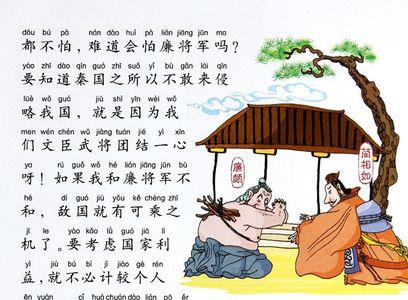 dōu bú pà nán dào huì pà lián jiāng jūn ma
都不怕，难道会怕廉将军吗？
yào zhī dào qín guó zhī suǒ yǐ bù gǎn lái qīn
要知道秦国之所以不敢来侵
lüè wǒ guó jiù shì yīn wèi wǒ
略我国，就是因为我
men wén chén wǔ jiàng tuán jié yì xīn
们文臣武将团结一心
ya rú guǒ wǒ hé lián jiāng jūn bù
呀！如果我和廉将军不
hé dí guó jiù yǒu kě chéng zhī
和，敌国就有可乘之
jī le yào kǎo lǜ guó jiā lì
机了。要考虑国家利
yì jiù bú bì jì jiào gè rén
益，就不必计较个人
ēn yuàn cǐ huà chuán dào lián pō
廉颇
蔺相如